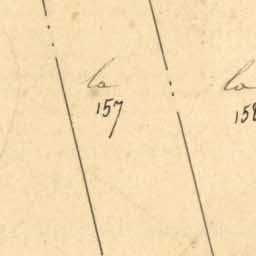 la
157
la
158